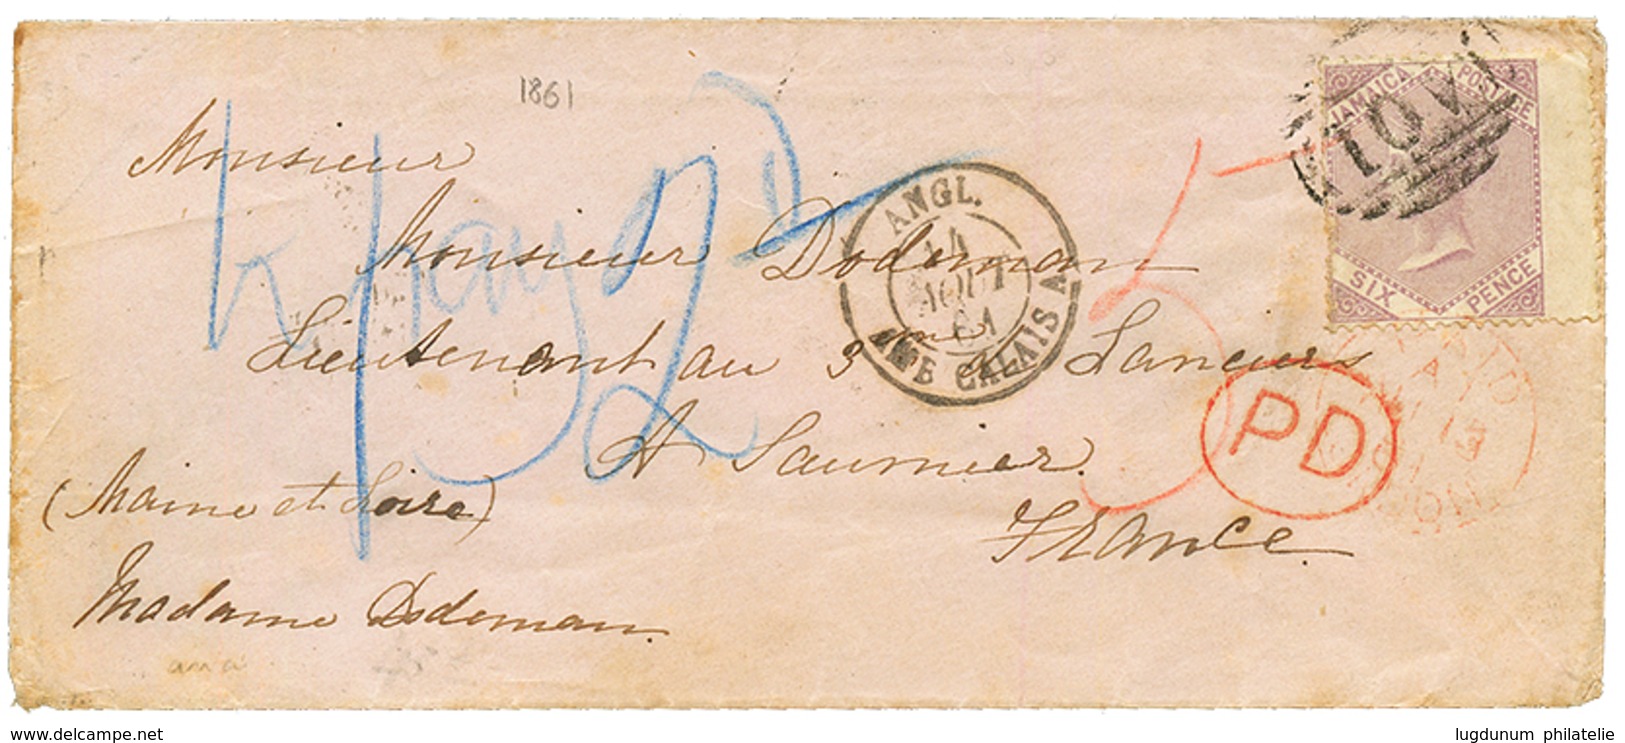 1861
JAMAICA POSTAGE
A01
SIX PENCE
Monsieur
Monsieur Dodeman
Lieutenant au 3me de Lanciers
A Saumier
(Maine et Loire)
France
Madame Dodeman
ANGL.
14
AOUT
61
AMB CALAIS A
5
PD
PAID
13
LONDON
2
www.delcampe.net
lugdunum philatelie